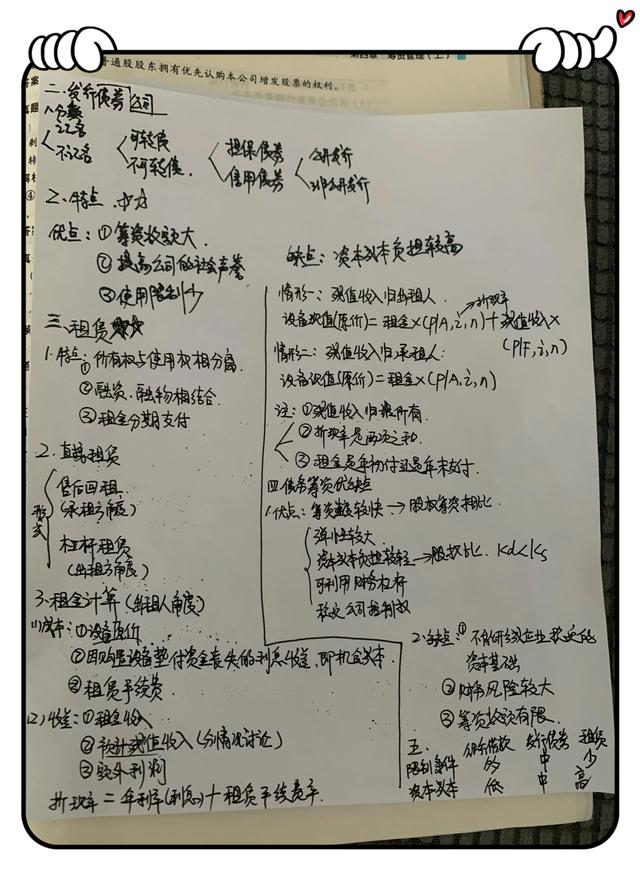 通股股东拥有优先认购本公司增发股票的权利。
二.发行债券
1.分类
记名
不记名
可转债
不可转债.
担保债券
信用债券
公开发行
非公开发行
2.特点
优点:①筹资数额大.
②提高公司的社会声誉
③使用限制少
缺点:资本成本负担较高
三.租赁
1.特点:①所有权与使用权相分离
②融资、融物相结合
③租金分期支付
2.直接租赁
售后回租
(承租方角度)
杠杆租赁
(出租方角度)
形式
3.租金计算(出租人角度)
(1)成本:①设备原价
②因购置设备垫付资金丧失的利息收益,即机会成本.
③租赁手续费
(2)收益:①租金收入
②预计残值收入(分情况讨论)
③额外利润
折现率=年利率(利息)+租赁手续费率.
情形一:残值收入归出租人.
折现率
设备现值(原价)=租金×(P/A,i,n)+残值收入×
(P/F,i,n)
情形二:残值收入归承租人:
设备现值(原价)=租金×(P/A,i,n)
注:①残值收入归谁所有.
②折现率是两项之和.
③租金是年初付还是年末支付.
四.债务筹资优缺点
1.优点:筹资速度较快→股权筹资相比
弹性较大
资本成本负担较轻→股权比. Kd<Ks
可利用财务杠杆
稳定公司控制权
2.缺点:①不能形成企业稳定的
资本基础
②财务风险较大
③筹资数额有限.
五.
银行借款 发行债券 租赁
限制条件 多 中 少
资本成本 低 中 高